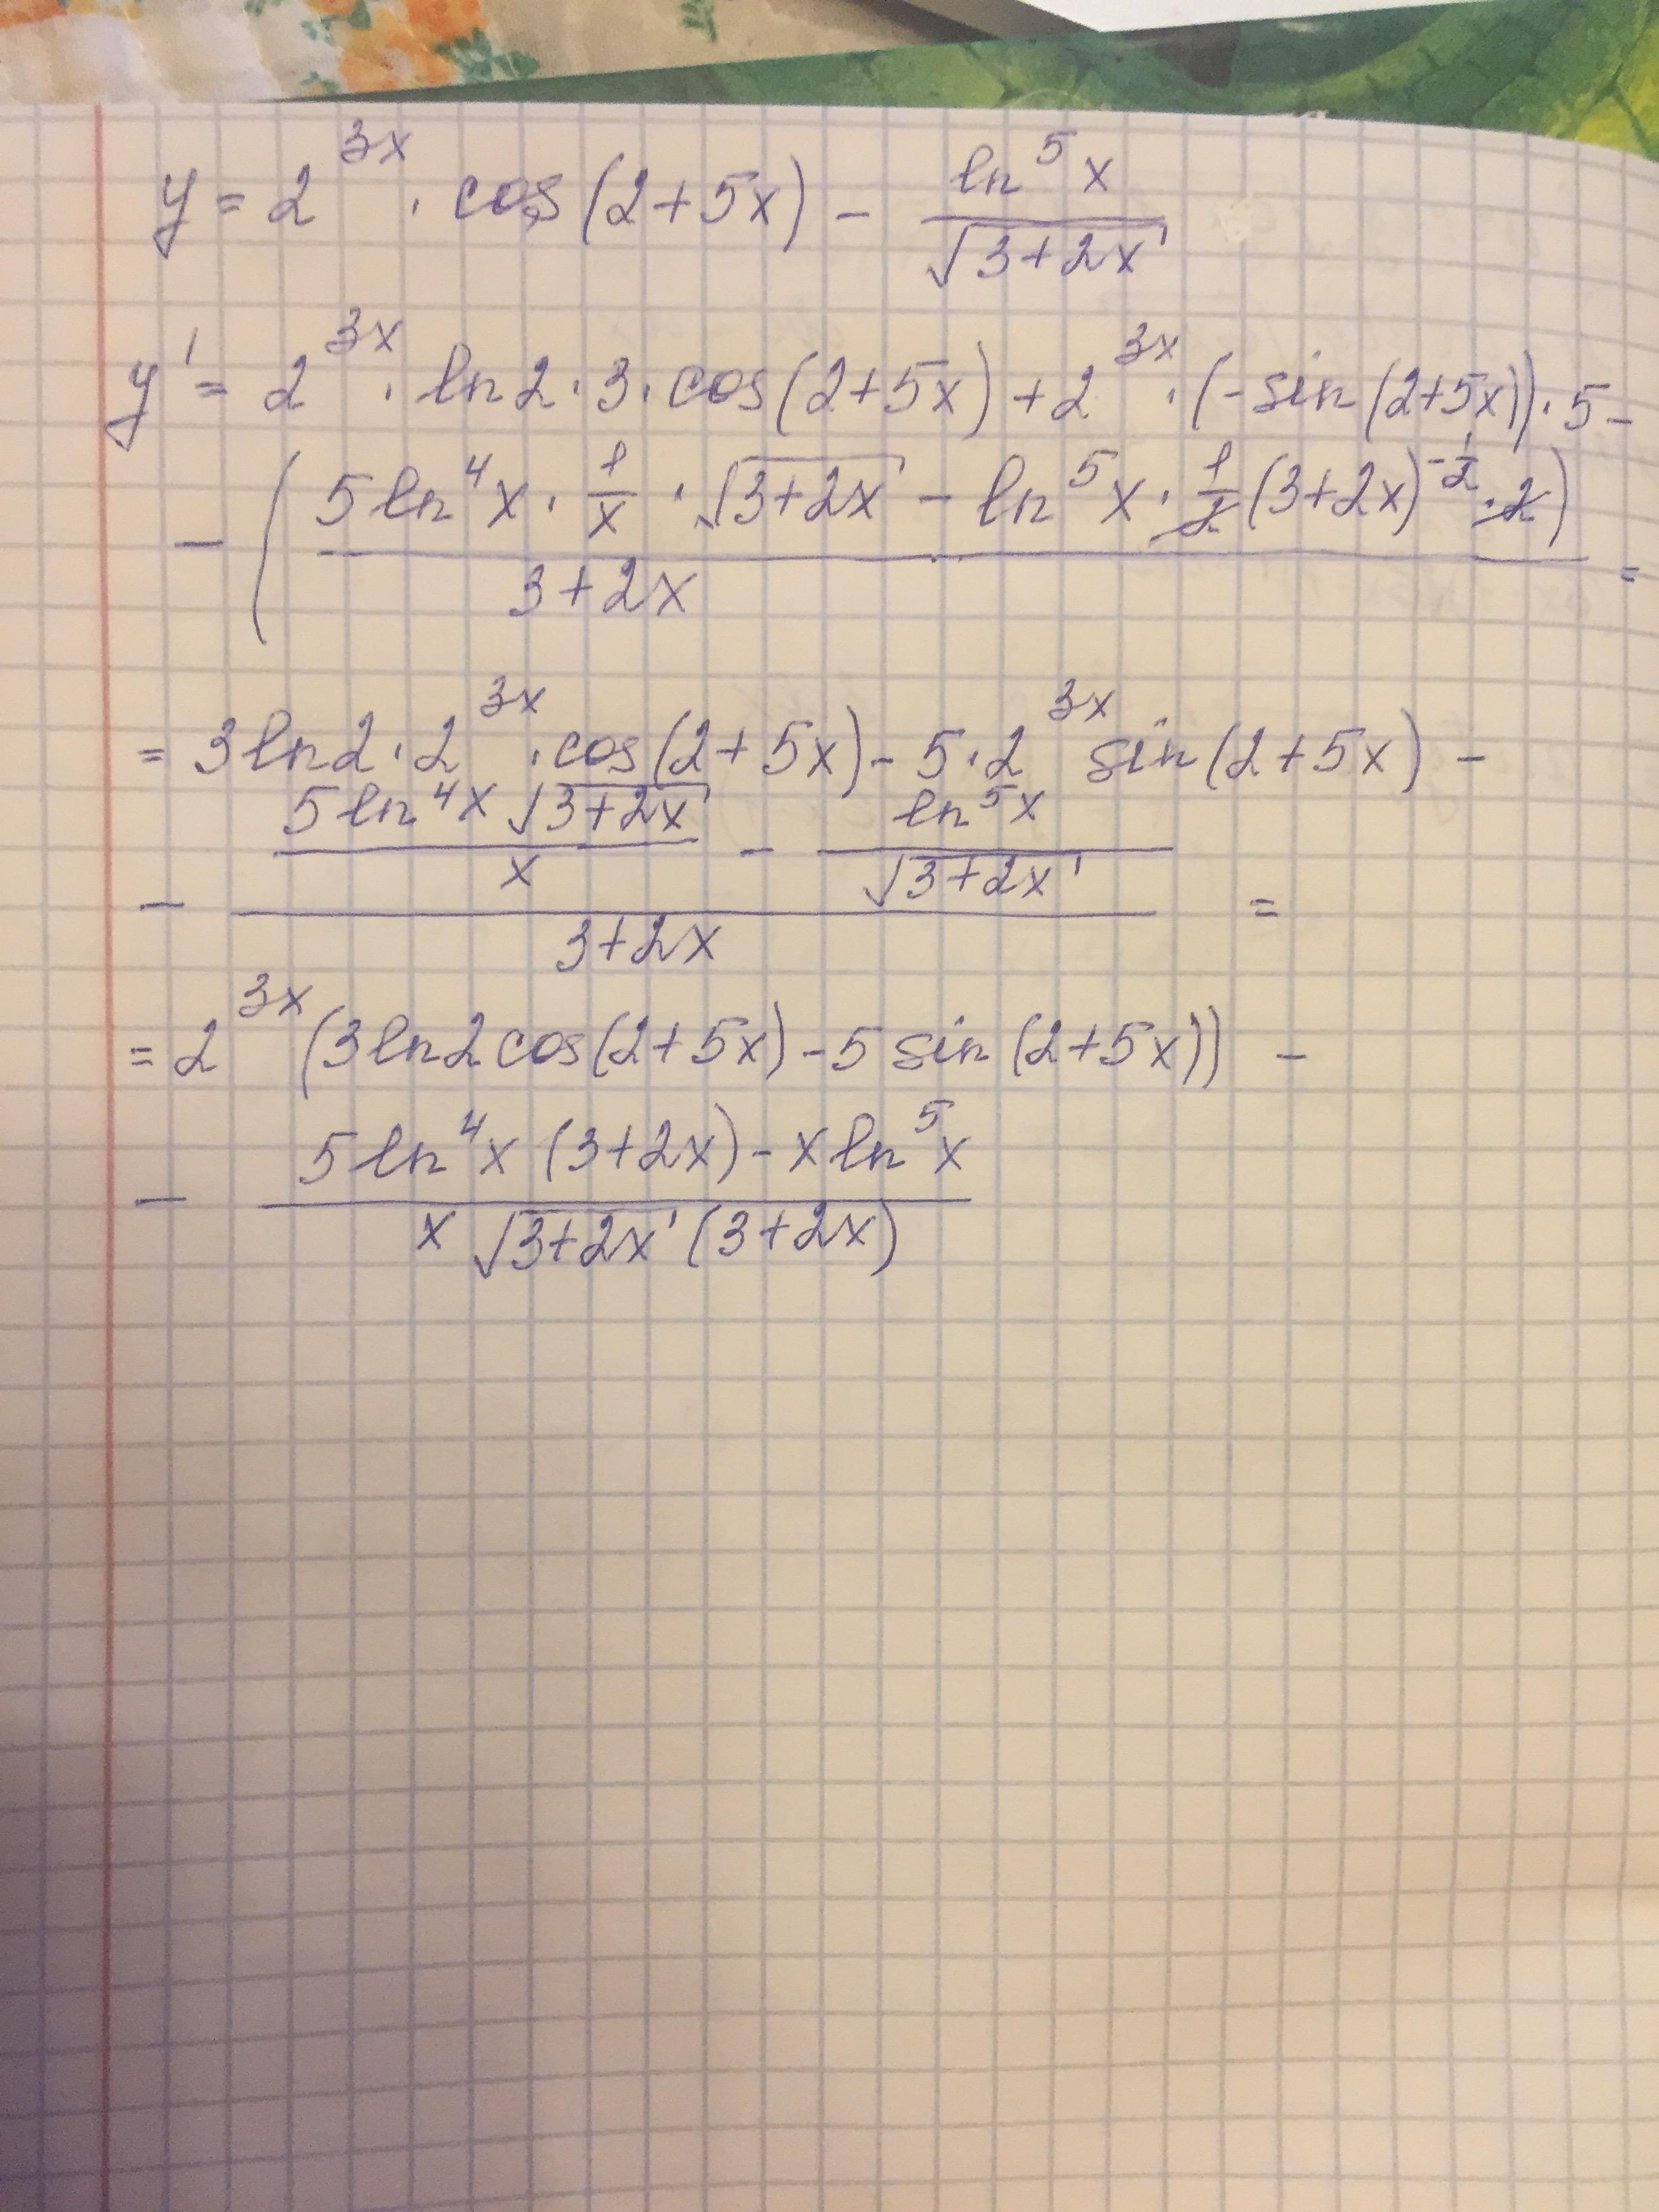 y = 2^{3x} · cos(2+5x) - \frac{ln^5 x}{\sqrt{3+2x}}
y' = 2^{3x} · ln2 · 3 · cos(2+5x) + 2^{3x} · (-sin(2+5x)) · 5 -
- ( \frac{5ln^4 x · \frac{1}{x} · \sqrt{3+2x} - ln^5 x · \frac{1}{2}(3+2x)^{-\frac{1}{2}} · 2)}{3+2x} =
= 3ln2 · 2^{3x} · cos(2+5x) - 5 · 2^{3x} sin(2+5x) -
- \frac{\frac{5ln^4 x \sqrt{3+2x}}{x} - \frac{ln^5 x}{\sqrt{3+2x}}}{3+2x} =
= 2^{3x} (3ln2cos(2+5x) - 5sin(2+5x)) -
- \frac{5ln^4 x (3+2x) - xln^5 x}{x\sqrt{3+2x}(3+2x)}